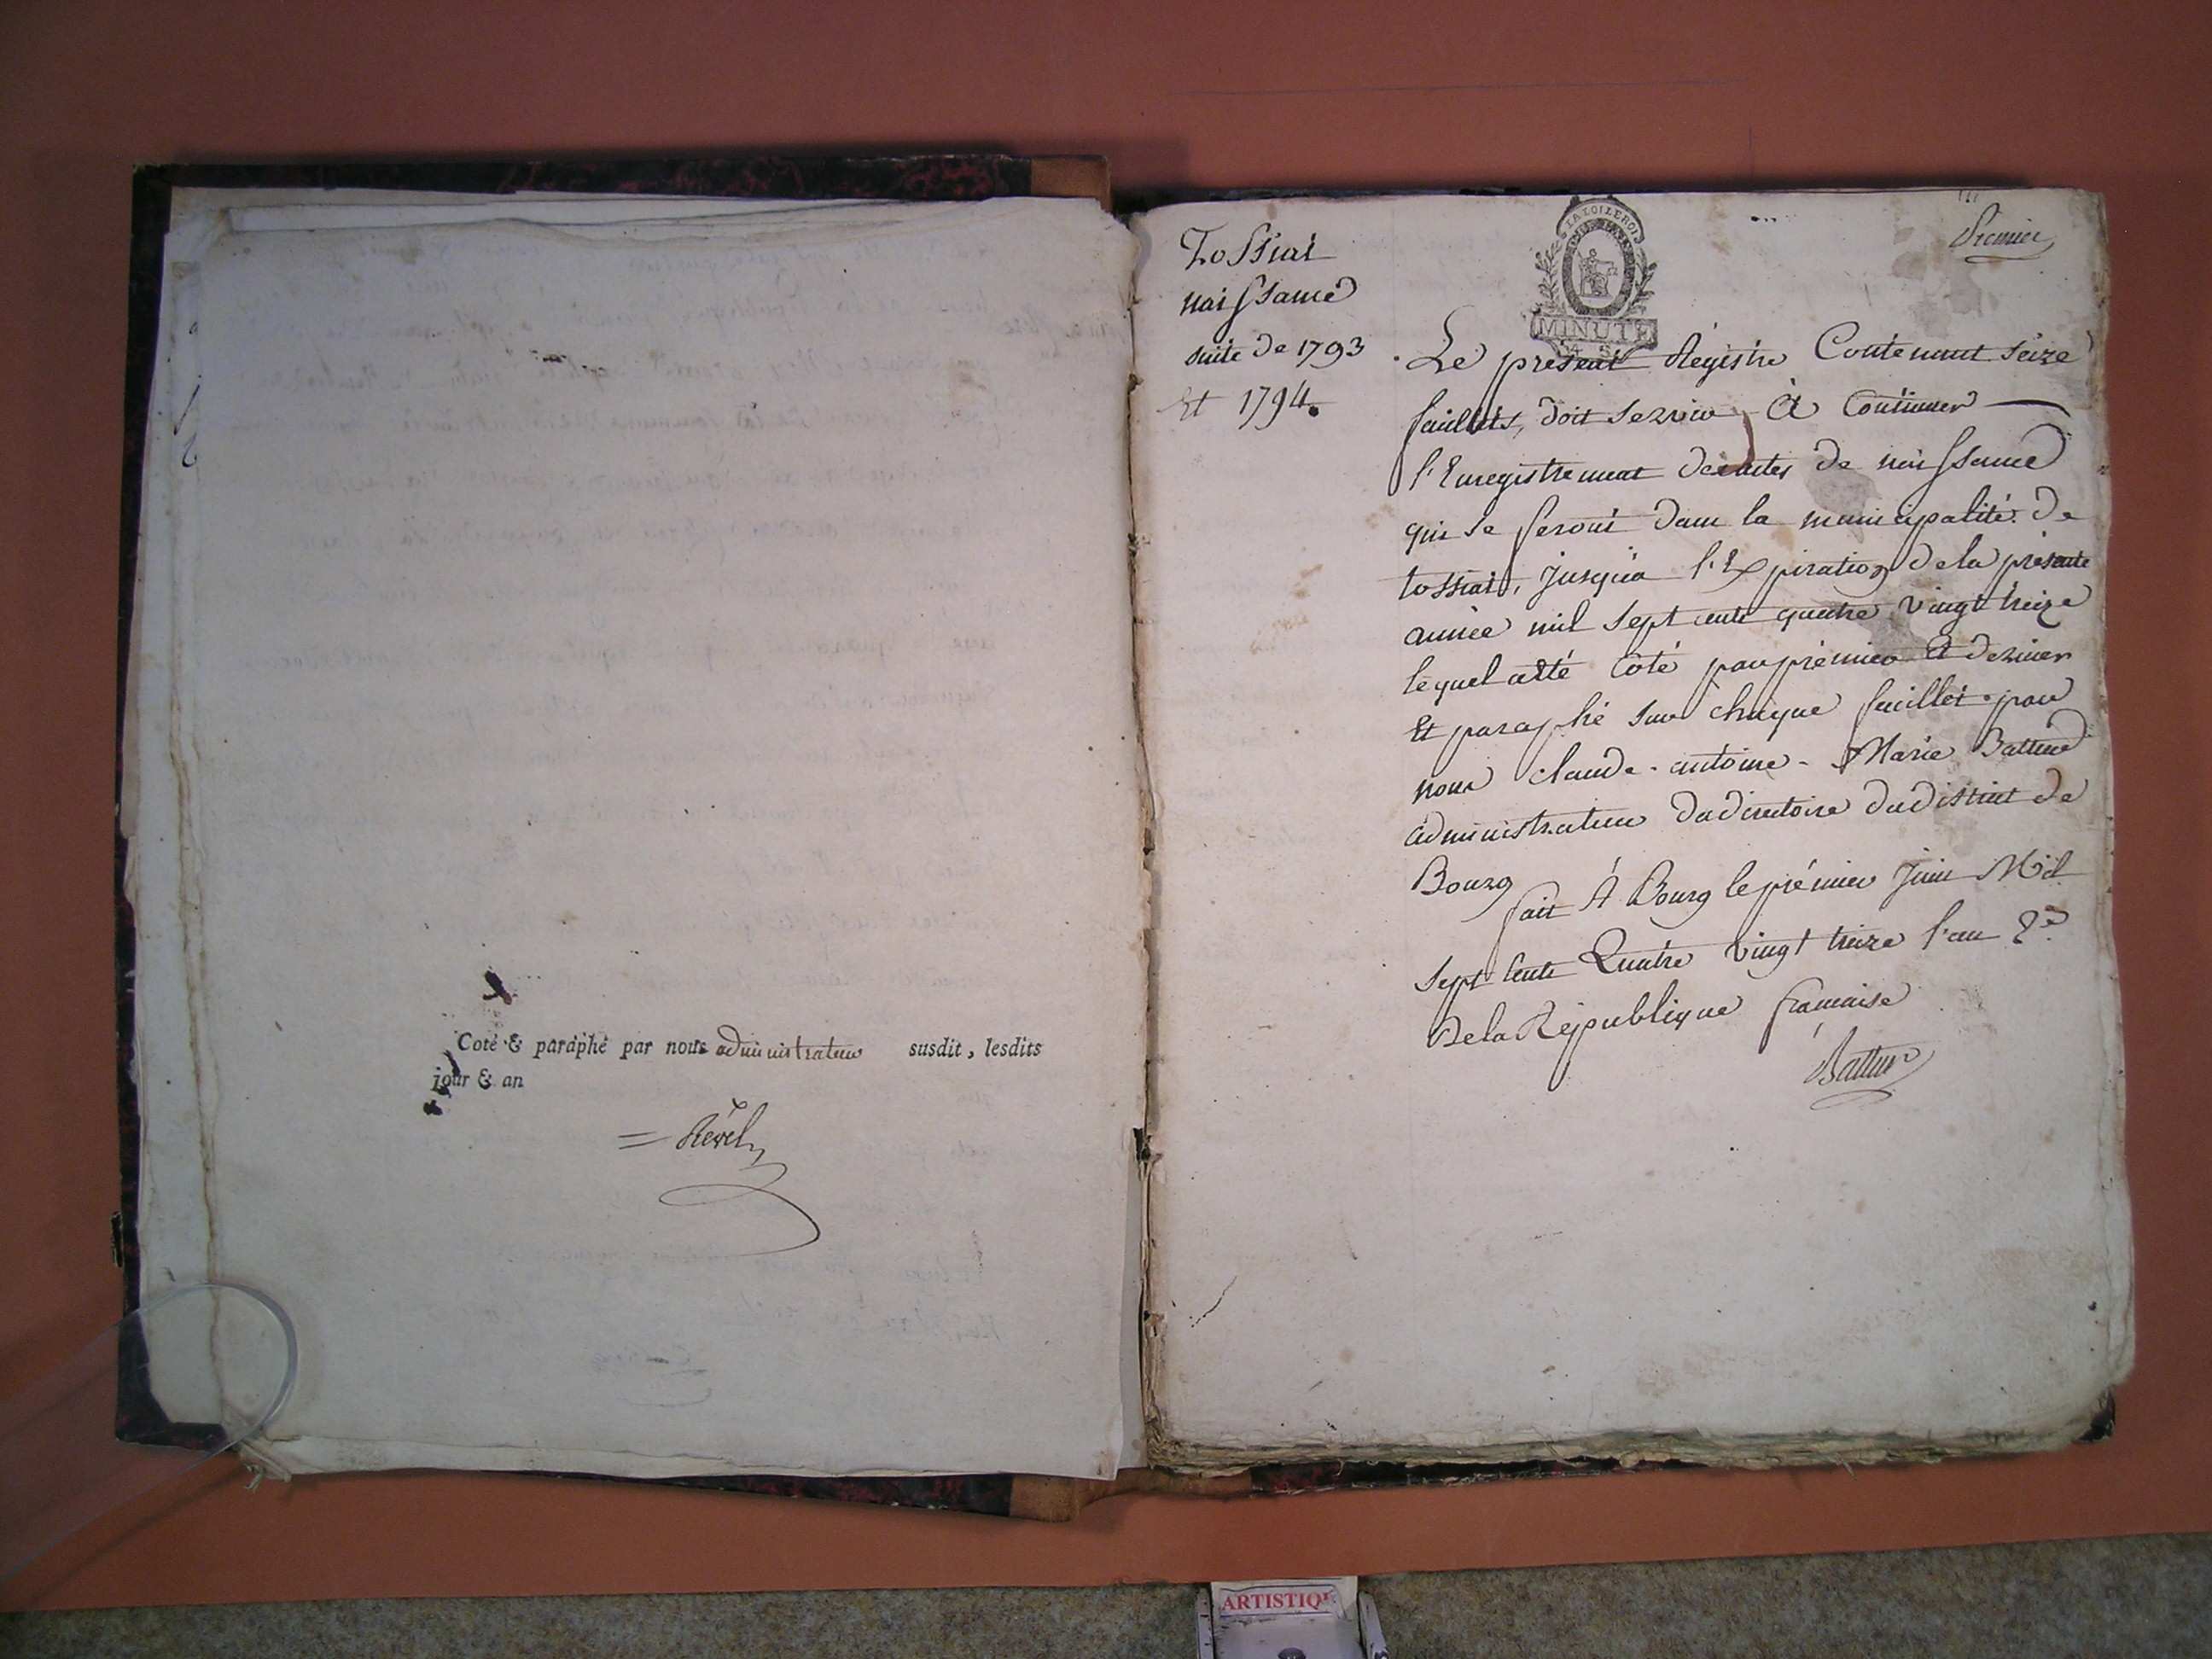 Coté & paraphé par nous administrateur susdit, lesdits
jour & an
= Rével
Premier
Tossiat
naissance
suite de 1793
Et 1794.
LA LOI LE ROI
MINUTE
Le present Régistre Contenant seize
feuillets, doit servir À Continuer
l'Enregistrement des actes de naissance
qui se feront dans la municipalité de
tossiat, jusqu'à l'Expiration de la présente
année mil sept cents quatre vingt treize
lequel a été coté par prémier Et dernier
Et paraphé sur chaque feuillet par
nous claude-antoine-Marie Battur
administrateur du directoire du district de
Bourg
fait À Bourg le prémier juin Mil
sept Cents Quatre vingt treize l'an 2e
De la République francaise
Battur
ARTISTIQ